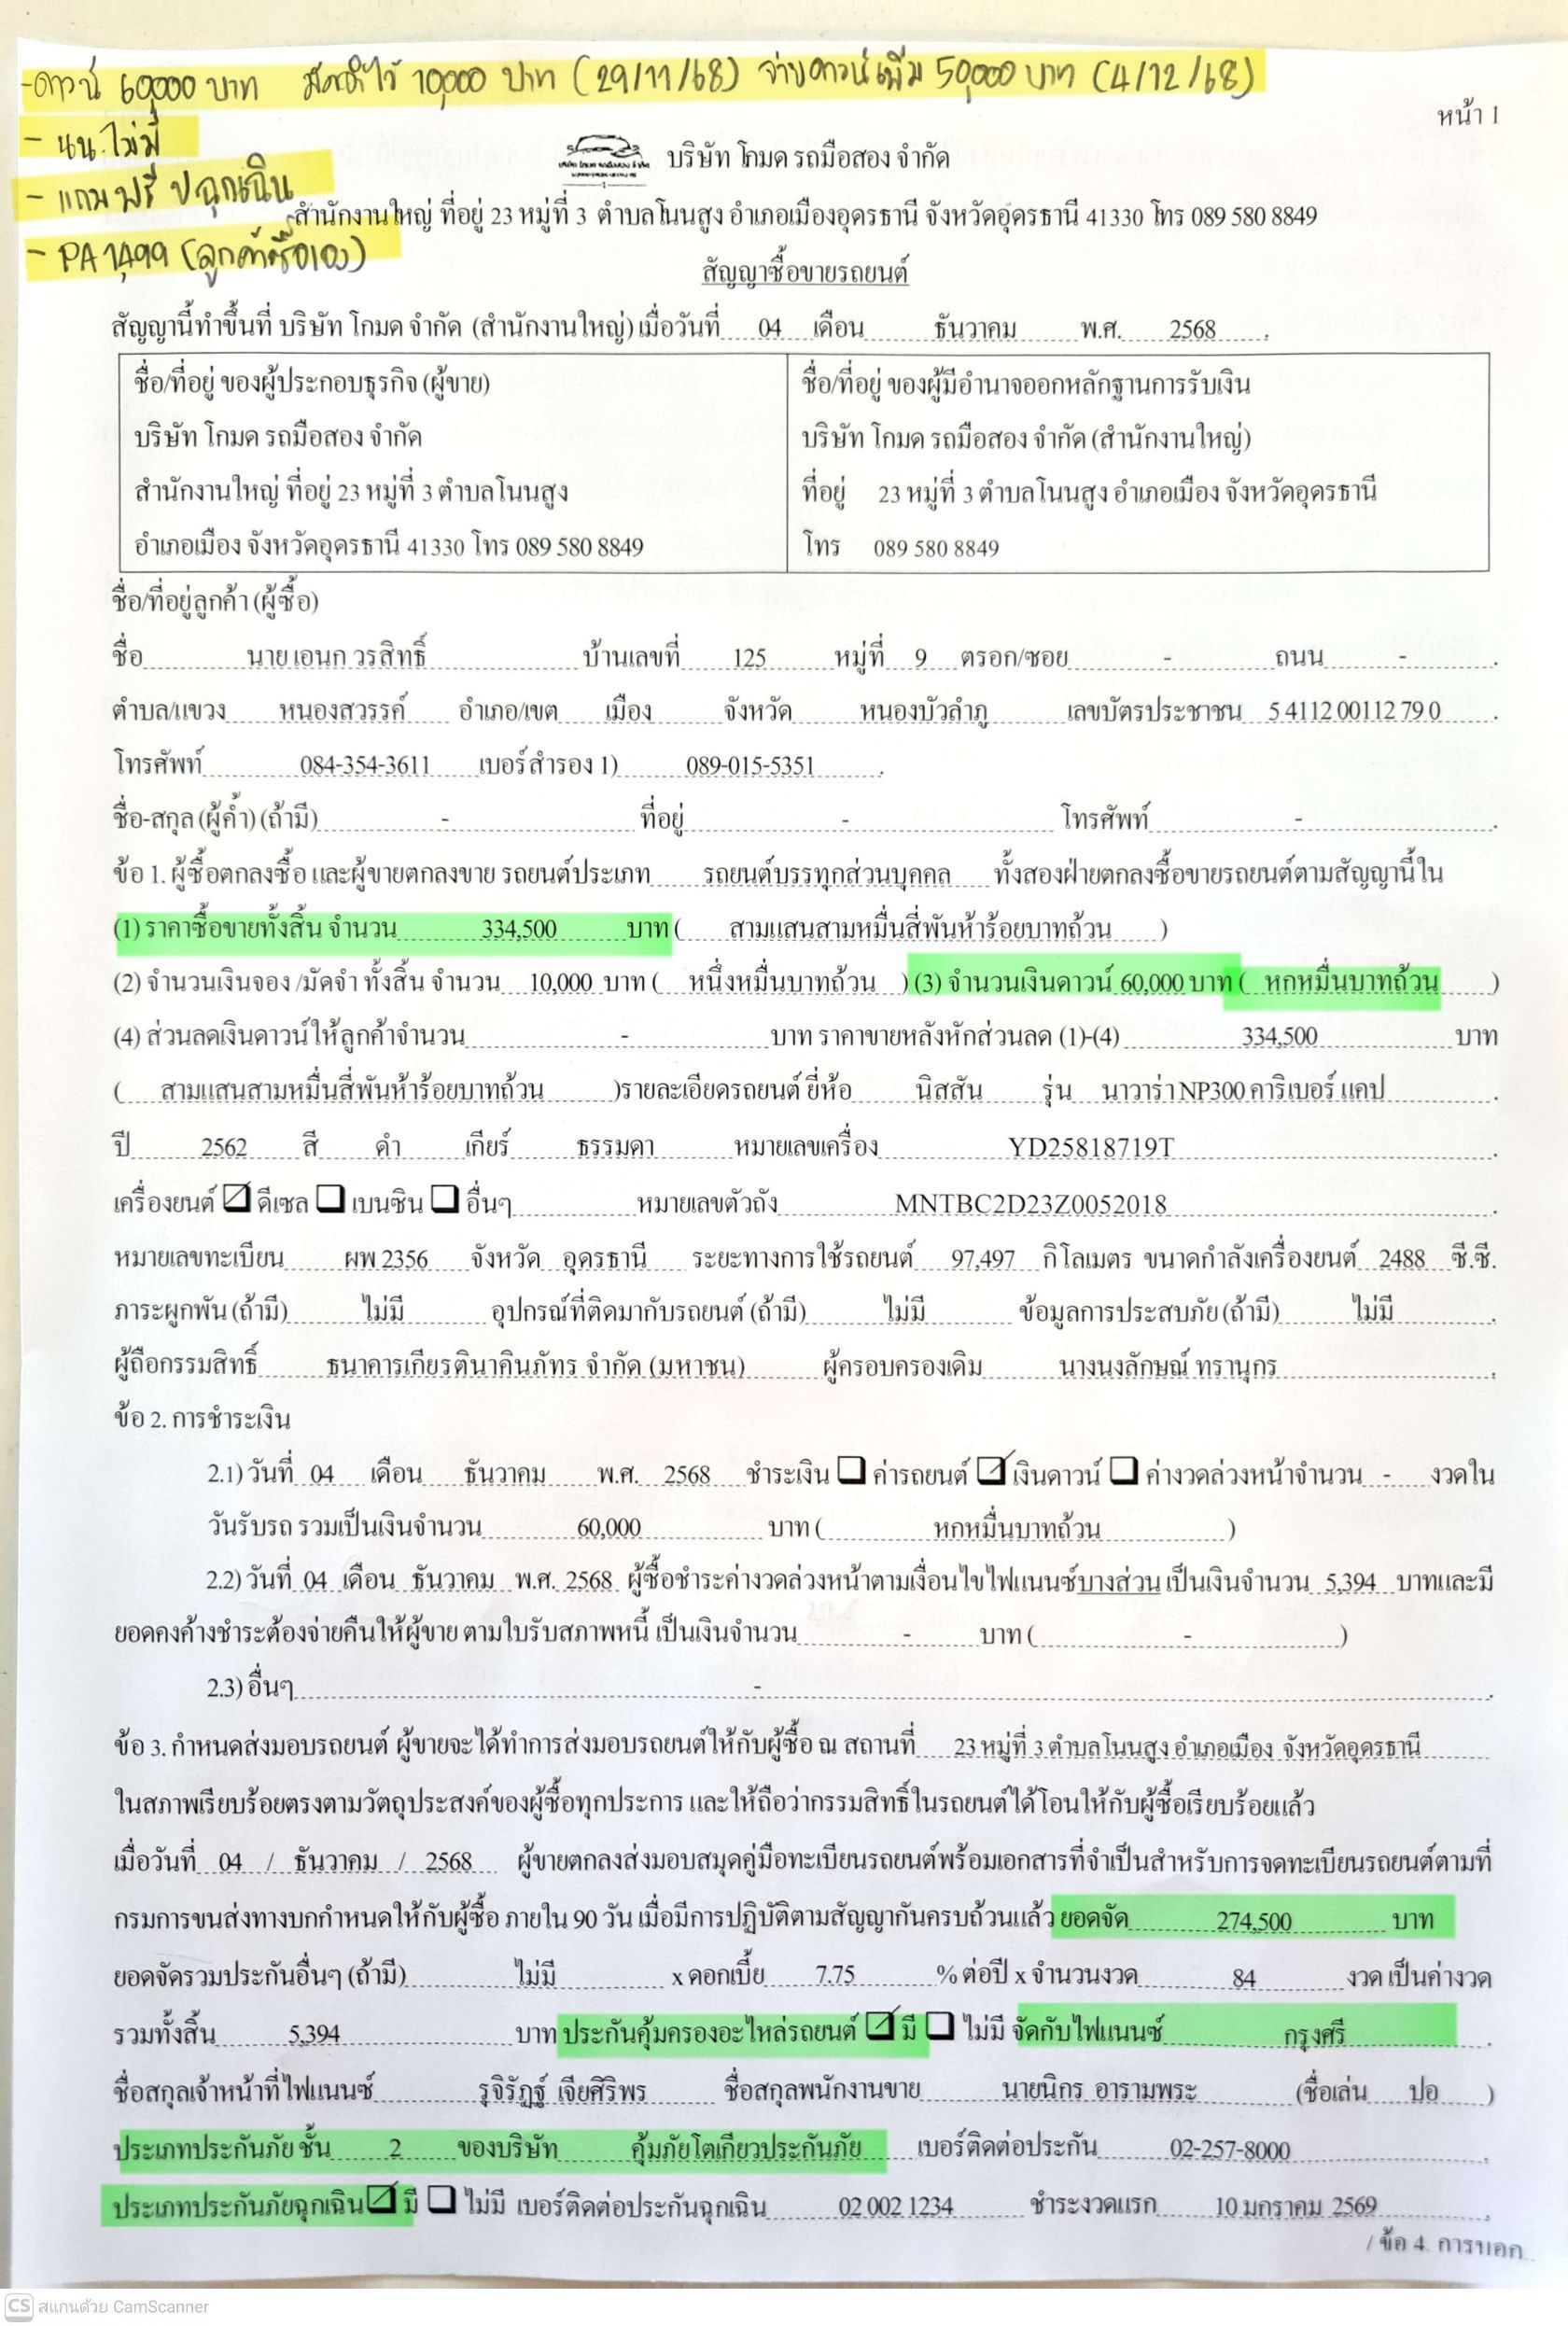 -ดาวน์ 60,000 บาท มัดจำไว้ 10,000 บาท (29/11/68) จ่ายดาวน์เพิ่ม 50,000 บาท (4/12/68)
หน้า 1
- นน.ไม่มี
บริษัท โกมด รถมือสอง จำกัด
- แถมฟรี ป.ฉุกเฉิน
สำนักงานใหญ่ ที่อยู่ 23 หมู่ที่ 3 ตำบลโนนสูง อำเภอเมืองอุดรธานี จังหวัดอุดรธานี 41330 โทร 089 580 8849
- PA 1,499 (ลูกค้าซื้อเอง)
สัญญาซื้อขายรถยนต์
สัญญานี้ทำขึ้นที่ บริษัท โกมด จำกัด (สำนักงานใหญ่) เมื่อวันที่ 04 เดือน ธันวาคม พ.ศ. 2568 .
ชื่อ/ที่อยู่ ของผู้ประกอบธุรกิจ (ผู้ขาย)
บริษัท โกมด รถมือสอง จำกัด
สำนักงานใหญ่ ที่อยู่ 23 หมู่ที่ 3 ตำบลโนนสูง
อำเภอเมือง จังหวัดอุดรธานี 41330 โทร 089 580 8849
ชื่อ/ที่อยู่ ของผู้มีอำนาจออกหลักฐานการรับเงิน
บริษัท โกมด รถมือสอง จำกัด (สำนักงานใหญ่)
ที่อยู่ 23 หมู่ที่ 3 ตำบลโนนสูง อำเภอเมือง จังหวัดอุดรธานี
โทร 089 580 8849
ชื่อ/ที่อยู่ลูกค้า (ผู้ซื้อ)
ชื่อ นาย เอนก วรสิทธิ์ บ้านเลขที่ 125 หมู่ที่ 9 ตรอก/ซอย - ถนน - .
ตำบล/แขวง หนองสวรรค์ อำเภอ/เขต เมือง จังหวัด หนองบัวลำภู เลขบัตรประชาชน 5 4112 00112 79 0 .
โทรศัพท์ 084-354-3611 เบอร์สำรอง 1) 089-015-5351 .
ชื่อ-สกุล (ผู้ค้ำ) (ถ้ามี) - ที่อยู่ - โทรศัพท์ - .
ข้อ 1. ผู้ซื้อตกลงซื้อ และผู้ขายตกลงขาย รถยนต์ประเภท รถยนต์บรรทุกส่วนบุคคล ทั้งสองฝ่ายตกลงซื้อขายรถยนต์ตามสัญญานี้ใน
(1) ราคาซื้อขายทั้งสิ้น จำนวน 334,500 บาท ( สามแสนสามหมื่นสี่พันห้าร้อยบาทถ้วน )
(2) จำนวนเงินจอง /มัดจำ ทั้งสิ้น จำนวน 10,000 บาท ( หนึ่งหมื่นบาทถ้วน ) (3) จำนวนเงินดาวน์ 60,000 บาท ( หกหมื่นบาทถ้วน )
(4) ส่วนลดเงินดาวน์ให้ลูกค้าจำนวน - บาท ราคาขายหลังหักส่วนลด (1)-(4) 334,500 บาท
( สามแสนสามหมื่นสี่พันห้าร้อยบาทถ้วน )รายละเอียดรถยนต์ ยี่ห้อ นิสสัน รุ่น นาวาร่า NP300 คาริเบอร์ แคป .
ปี 2562 สี ดำ เกียร์ ธรรมดา หมายเลขเครื่อง YD25818719T .
เครื่องยนต์ ☑ ดีเซล ☐ เบนซิน ☐ อื่นๆ หมายเลขตัวถัง MNTBC2D23Z0052018 .
หมายเลขทะเบียน ผพ 2356 จังหวัด อุดรธานี ระยะทางการใช้รถยนต์ 97,497 กิโลเมตร ขนาดกำลังเครื่องยนต์ 2488 ซี.ซี.
ภาระผูกพัน (ถ้ามี) ไม่มี อุปกรณ์ที่ติดมากับรถยนต์ (ถ้ามี) ไม่มี ข้อมูลการประสบภัย (ถ้ามี) ไม่มี .
ผู้ถือกรรมสิทธิ์ ธนาคารเกียรตินาคินภัทร จำกัด (มหาชน) ผู้ครอบครองเดิม นางนงลักษณ์ ทรานุกร .
ข้อ 2. การชำระเงิน
2.1) วันที่ 04 เดือน ธันวาคม พ.ศ. 2568 ชำระเงิน ☐ ค่ารถยนต์ ☑ เงินดาวน์ ☐ ค่างวดล่วงหน้าจำนวน - งวดใน
วันรับรถ รวมเป็นเงินจำนวน 60,000 บาท ( หกหมื่นบาทถ้วน )
2.2) วันที่ 04 เดือน ธันวาคม พ.ศ. 2568 ผู้ซื้อชำระค่างวดล่วงหน้าตามเงื่อนไขไฟแนนซ์บางส่วน เป็นเงินจำนวน 5,394 บาทและมี
ยอดคงค้างชำระต้องจ่ายคืนให้ผู้ขาย ตามใบรับสภาพหนี้ เป็นเงินจำนวน - บาท ( - )
2.3) อื่นๆ - .
ข้อ 3. กำหนดส่งมอบรถยนต์ ผู้ขายจะได้ทำการส่งมอบรถยนต์ให้กับผู้ซื้อ ณ สถานที่ 23 หมู่ที่ 3 ตำบลโนนสูง อำเภอเมือง จังหวัดอุดรธานี
ในสภาพเรียบร้อยตรงตามวัตถุประสงค์ของผู้ซื้อทุกประการ และให้ถือว่ากรรมสิทธิ์ในรถยนต์ได้โอนให้กับผู้ซื้อเรียบร้อยแล้ว
เมื่อวันที่ 04 / ธันวาคม / 2568 ผู้ขายตกลงส่งมอบสมุดคู่มือทะเบียนรถยนต์พร้อมเอกสารที่จำเป็นสำหรับการจดทะเบียนรถยนต์ตามที่
กรมการขนส่งทางบกกำหนดให้กับผู้ซื้อ ภายใน 90 วัน เมื่อมีการปฏิบัติตามสัญญากันครบถ้วนแล้ว ยอดจัด 274,500 บาท
ยอดจัดรวมประกันอื่นๆ (ถ้ามี) ไม่มี x ดอกเบี้ย 7.75 % ต่อปี x จำนวนงวด 84 งวด เป็นค่างวด
รวมทั้งสิ้น 5,394 บาท ประกันคุ้มครองอะไหล่รถยนต์ ☑ มี ☐ ไม่มี จัดกับไฟแนนซ์ กรุงศรี .
ชื่อสกุลเจ้าหน้าที่ไฟแนนซ์ รุจิรัฏฐ์ เจียศิริพร ชื่อสกุลพนักงานขาย นายนิกร อารามพระ (ชื่อเล่น ปอ )
ประเภทประกันภัย ชั้น 2 ของบริษัท คุ้มภัยโตเกียวประกันภัย เบอร์ติดต่อประกัน 02-257-8000 .
ประเภทประกันภัยฉุกเฉิน ☑ มี ☐ ไม่มี เบอร์ติดต่อประกันฉุกเฉิน 02 002 1234 ชำระงวดแรก 10 มกราคม 2569 .
/ ข้อ 4. การบอก...
CS สแกนด้วย CamScanner